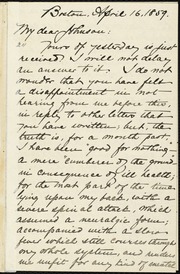 Boston, April 16, 1859.
My dear Johnson:
Yours of yesterday is just
received. I will not delay
an answer to it. I do not
wonder that you have felt
a disappointment in not
hearing from me before this
in reply to other letters that
you have written; but, the
truth is, for a month past,
I have been good for nothing—
a mere cumberer of the ground
in consequence of ill health;
for the most part of the time
lying upon my back, with a
severe spinal attack, which
assumed a neuralgic form,
accompanied with a slow
fever which still courses through
my whole system, and renders
me unfit for any kind of mental